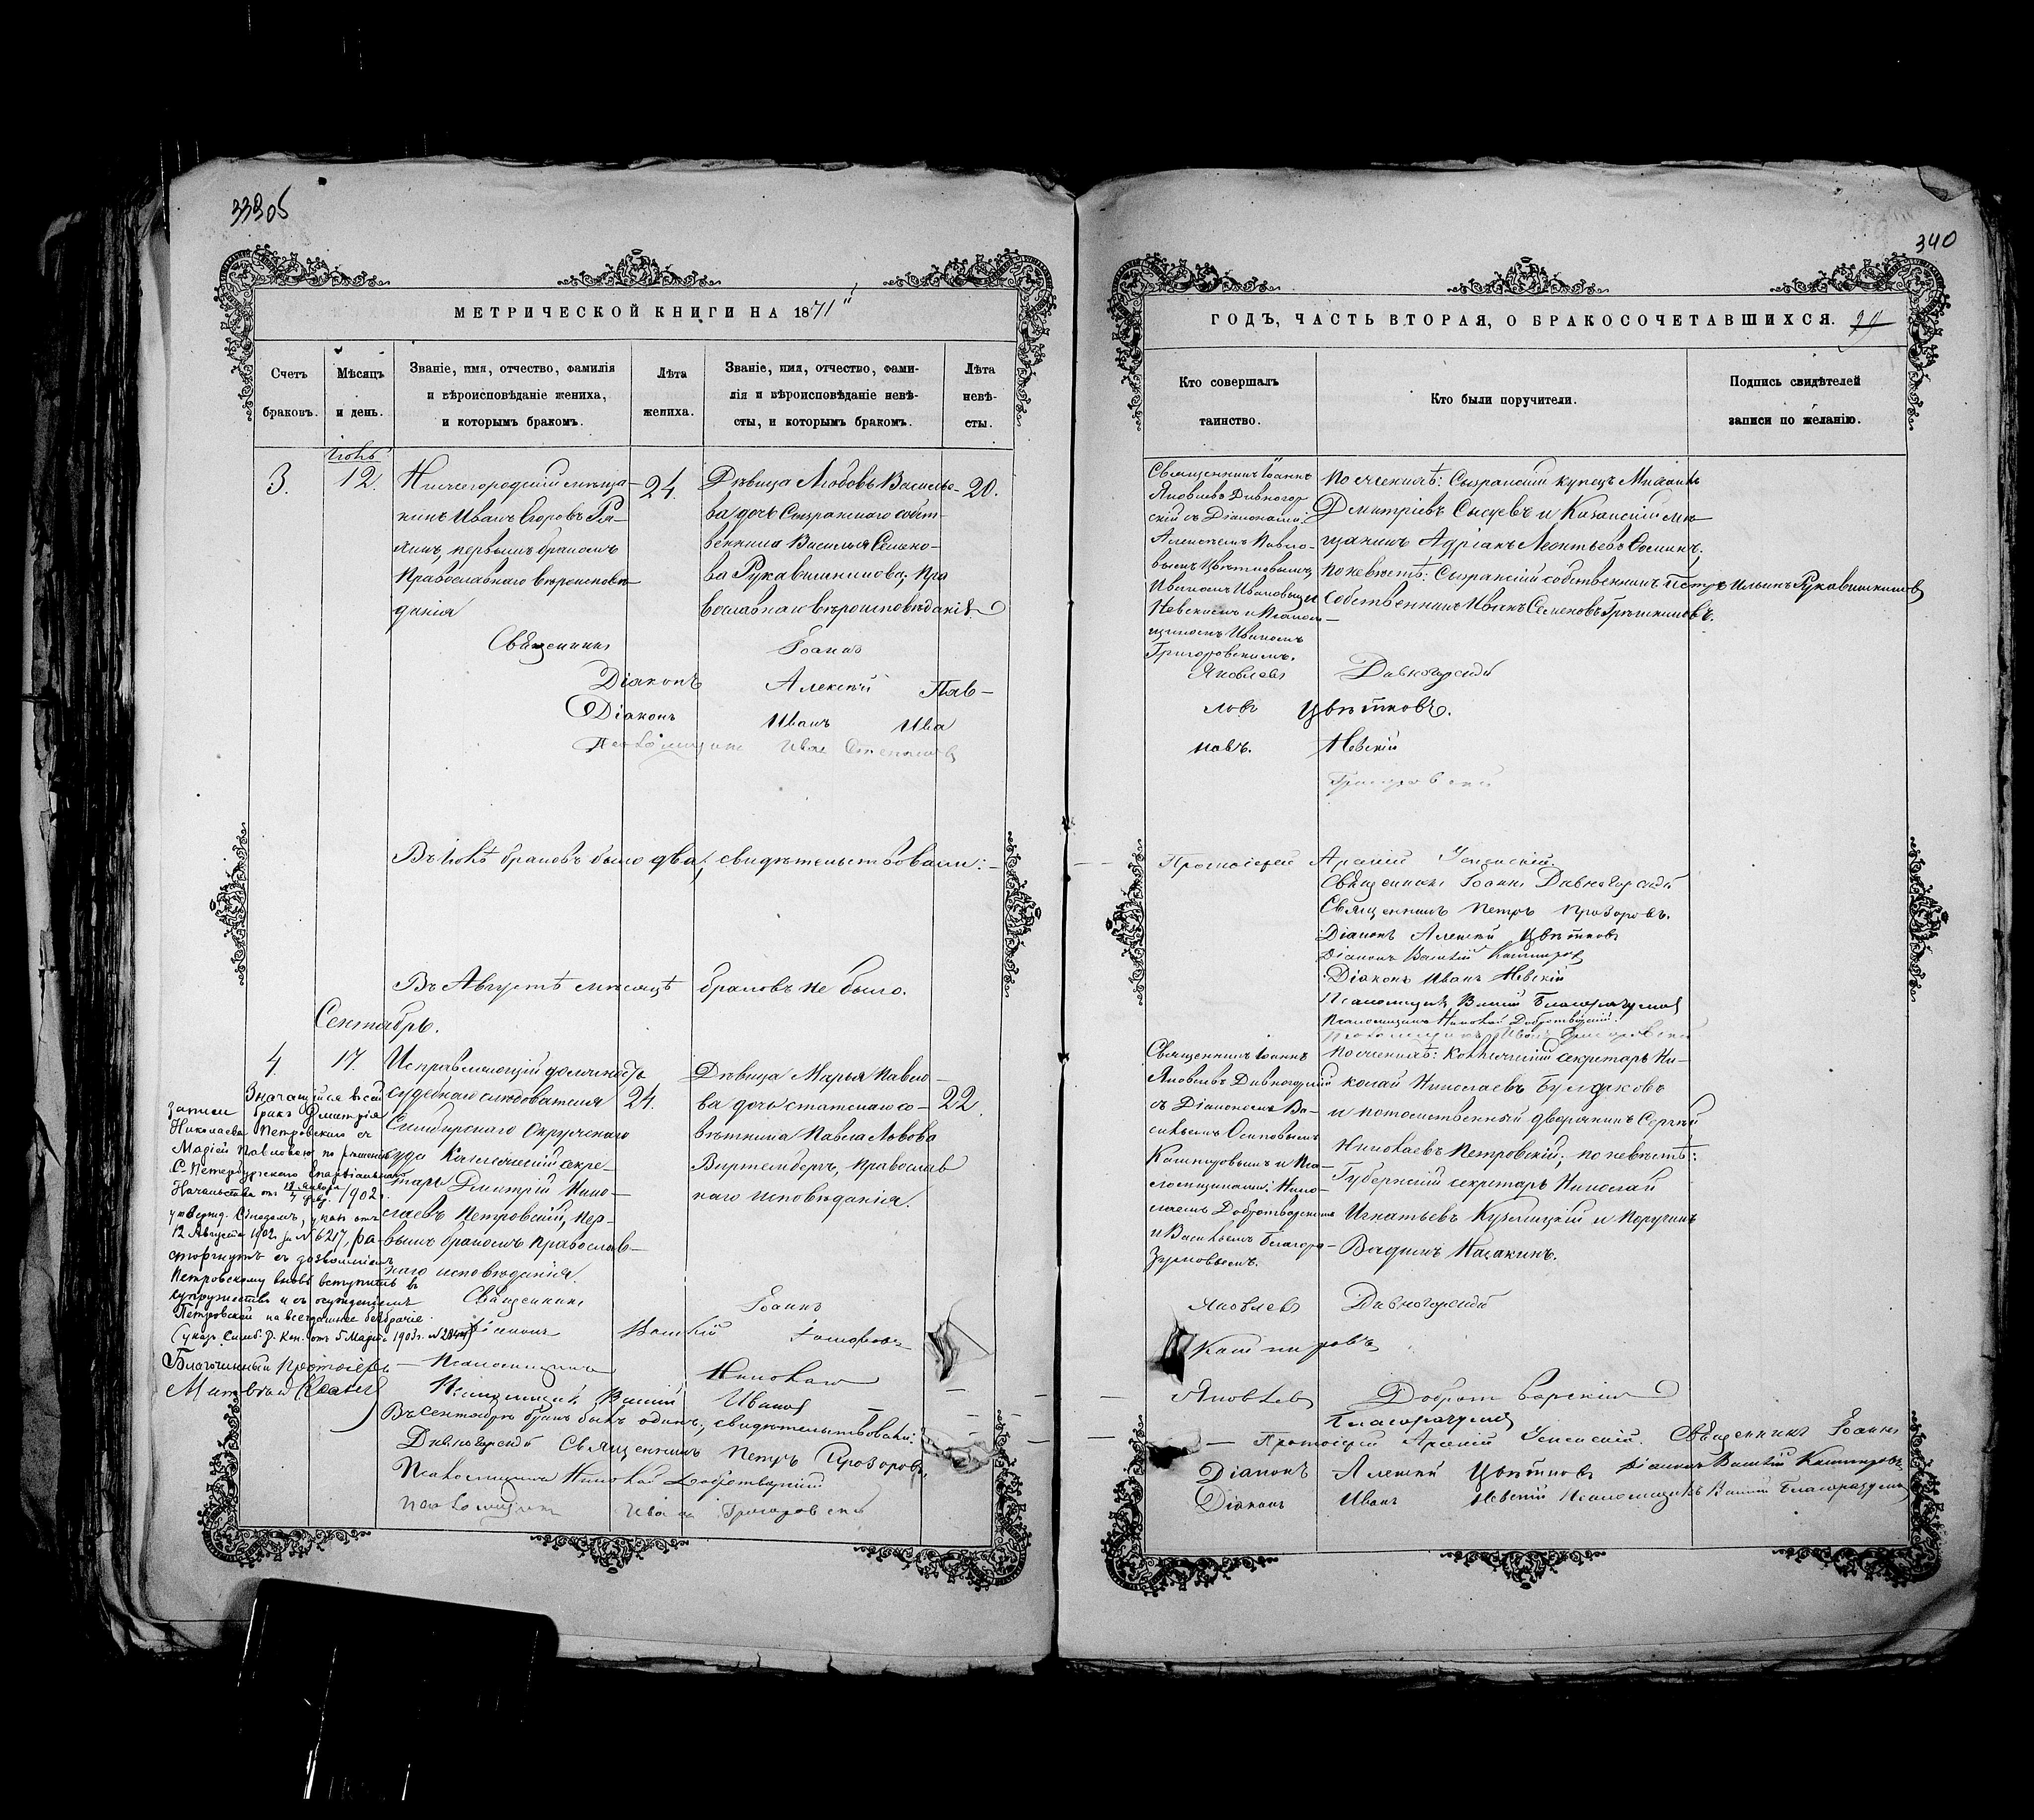 339об
МЕТРИЧЕСКОЙ КНИГИ НА 1871
Счетъ браковъ.
Мѣсяцъ и день.
Званіе, имя, отчество, фамилія
и вѣроисповѣданіе жениха,
и которымъ бракомъ.
Лѣта жениха.
Званіе, имя, отчество, фами-
лія и вѣроисповѣданіе невѣ-
сты, и которымъ бракомъ.
Лѣта невѣ-
сты.
Іюль
3.
12.
Нижегородскій мѣща-
нинъ Иванъ Егоровъ
первымъ бракомъ
Православнаго вѣроисповѣ-
данія
24.
Дѣвица Любовь Василье-
ва дочь Сызранскаго собст-
венника Василья Семено-
ва Рукавишникова; Пра
вославнаго вѣроисповѣданія.
20.
Священникъ Іоаннъ
Діаконъ Алексѣй Пав-
Діаконъ Иванъ Ива
Псаломщикъ Иван
Въ Іюлѣ браковъ было два; свидѣтельствовали:
Въ Августѣ мѣсяцѣ браковъ не было.
Сентябрь.
4.
17.
Исправляющій должность
судебнаго слѣдователя
Симбирскаго Окружнаго
суда Коллежскій секре-
тарь Дмитрій Нико-
лаевъ Петровскій, пер-
вымъ бракомъ православ-
наго исповѣданія.
24.
Дѣвица Марья Павло-
ва дочь статскаго со-
вѣтника Павла Львова
Виртембергъ, православ
наго исповѣданія.
22.
Значащійся въ сей
записи бракъ Дмитрія
Николаева Петровскаго съ
Маріей Павловою по рѣшенію
С. Петербургскаго Епархіальнаго
Начальства отъ 18 января / 4 февр. 1902 г.
утвержд. Сѵнодомъ, указ отъ
12 Августа 1902 г. за № 6217, ра-
сторгнутъ съ дозволеніемъ
Петровскому вновь вступить въ
супружество и съ осужденіемъ
Петровской на всегдашнее безбрачіе.
(указ. Симб. Д. Кон. отъ 5 Марта 1903 г.
Благочинный Протоіерей
Священникъ Іоаннъ
Діаконъ
Псаломщикъ Николай
Въ сентябрѣ бракъ былъ одинъ; свидѣтельствовали:
Дивногорскій Священникъ Петръ Прозоровъ,
Псаломщикъ Николай Добротворскій
Псаломщикъ Иванъ Григоровскій
340
ГОДЪ, ЧАСТЬ ВТОРАЯ, О БРАКОСОЧЕТАВШИХСЯ.
Кто совершалъ
таинство.
Кто были поручители.
Подпись свидѣтелей
записи по желанію.
Священникъ Іоаннъ
Яковлевъ Дивногор
скій съ Діаконами:
Алексѣемъ Павло-
вымъ Цвѣтковымъ,
Иваномъ Ивановымъ
Невскимъ и Псалом-
щикомъ Иваномъ
Григоровскимъ.
По женихѣ: Сызранскій купецъ Михаилъ
Дмитріевъ Сысуевъ и Казанскій мѣ-
щанинъ Адріанъ Леонтьевъ
по невѣстѣ: Сызранскій собственникъ Петръ Ильинъ Рукавишниковъ
и Собственникъ Иванъ Семеновъ
Яковлевъ Дивногорскій
ловъ Цвѣтковъ.
новъ. Невскій
Григоровскій
Протоіерей Успенскій.
Священникъ Іоаннъ Дивногорскій
Священникъ Петръ Прозоровъ.
Діаконъ Алексѣй Цвѣтковъ
Діаконъ Василій Кашперовъ
Діаконъ Иванъ Невскій
Псаломщикъ Василій Благоразумовъ
Псаломщикъ Николай Добротворскій
Псаломщикъ Иванъ Григоровскій
Священникъ Іоаннъ
Яковлевъ Дивногорскій
съ Діакономъ Ва-
сильемъ Осиповымъ
Кашперовымъ и Пса-
ломщиками: Нико-
лаемъ Добротворскимъ
и Васильемъ Благора-
зумовымъ.
По женихѣ: коллежскій секретарь Ни-
колай Николаевъ
и потомственный дворянинъ Сергѣй
Николаевъ Петровскій; по невѣстѣ:
Губернскій секретарь Николай
Игнатьевъ и Поручикъ
Вадимъ
Яковлевъ Дивногорскій
Кашперовъ
Яковлевъ Добротворскій
Благоразумовъ
Протоіерей Успенскій. Священникъ Іоаннъ
Діаконъ Алексѣй Цвѣтковъ Діаконъ Василій Кашперовъ
Діаконъ Иванъ Невскій Псаломщикъ Василій Благоразумовъ